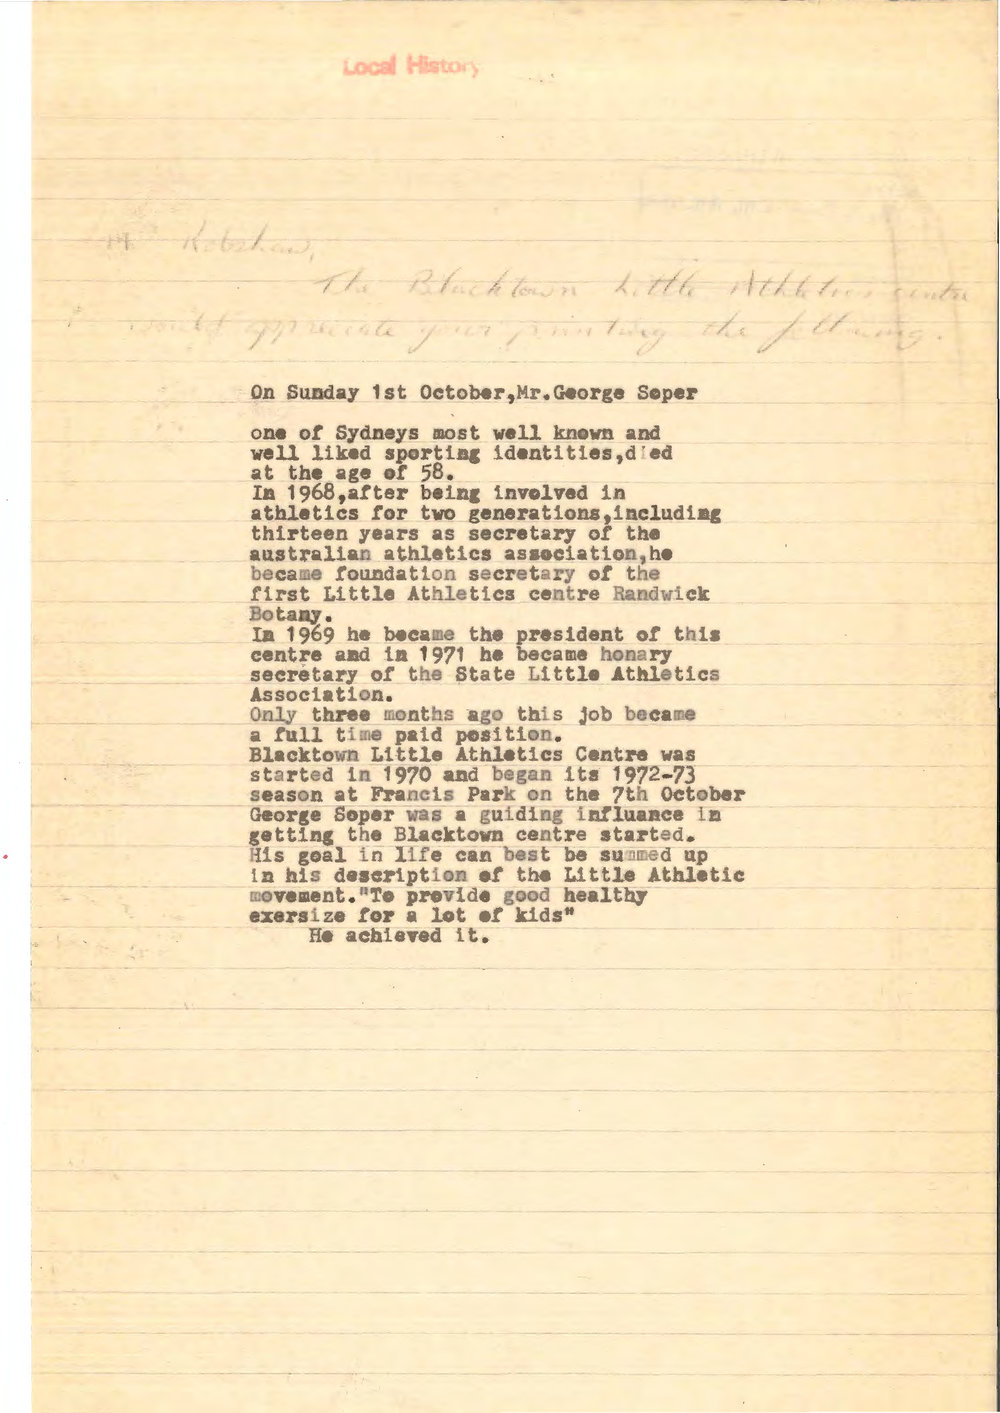 Local History
The Blacktown Little Athletics centre
would appreciate your printing the following.
On Sunday 1st October,Mr.George Soper
one of Sydneys most well known and
well liked sporting identities,died
at the age of 58.
In 1968,after being involved in
athletics for two generations,including
thirteen years as secretary of the
australian athletics association,he
became foundation secretary of the
first Little Athletics centre Randwick
Botany.
In 1969 he became the president of this
centre and in 1971 he became honary
secretary of the State Little Athletics
Association.
Only three months ago this job became
a full time paid position.
Blacktown Little Athletics Centre was
started in 1970 and began its 1972-73
season at Francis Park on the 7th October
George Soper was a guiding influance in
getting the Blacktown centre started.
His goal in life can best be summed up
in his description of the Little Athletic
movement."To provide good healthy
exersize for a lot of kids"
He achieved it.